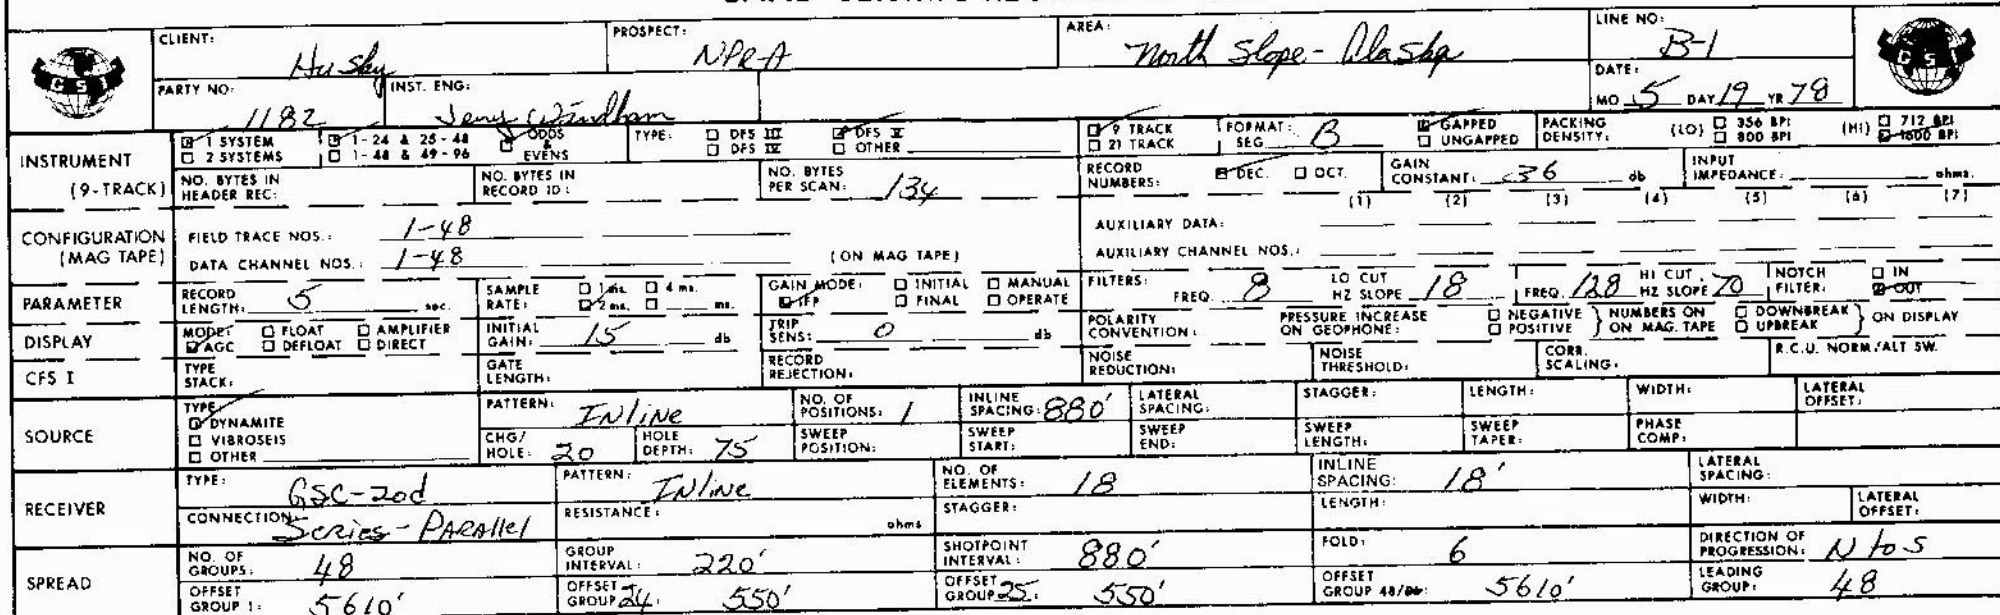 CLIENT: Husky PROSPECT: NPR-A AREA: North Slope - Alaska LINE NO: B-1
GSI GSI
PARTY NO: 1182 INST. ENG: Jerry Windham DATE: MO 5 DAY 19 YR 78
INSTRUMENT (9-TRACK)
1 SYSTEM 1-24 & 25-48 ODDS & EVENS TYPE: DFS III DFS V 9 TRACK FORMAT: SEG B GAPPED PACKING DENSITY: (LO) 356 BPI (HI) 712 BPI
2 SYSTEMS 1-48 & 49-96 DFS IV OTHER 21 TRACK UNGAPPED 800 BPI 1600 BPI
NO. BYTES IN HEADER REC: NO. BYTES IN RECORD ID: NO. BYTES PER SCAN: 134 RECORD NUMBERS: DEC. OCT. GAIN CONSTANT: 36 db INPUT IMPEDANCE: ohms.
(1) (2) (3) (4) (5) (6) (7)
CONFIGURATION (MAG TAPE)
FIELD TRACE NOS.: 1-48 AUXILIARY DATA:
DATA CHANNEL NOS.: 1-48 (ON MAG TAPE) AUXILIARY CHANNEL NOS.:
PARAMETER RECORD LENGTH: 5 sec. SAMPLE RATE: 1 ms. 4 ms. 2 ms. ms. GAIN MODE: INITIAL MANUAL IFP FINAL OPERATE FILTERS: FREQ. 8 LO CUT HZ SLOPE 18 FREQ. 128 HI CUT HZ SLOPE 70 NOTCH FILTER: IN OUT
DISPLAY MODE: FLOAT AMPLIFIER AGC DEFLOAT DIRECT INITIAL GAIN: 15 db TRIP SENS: 0 db POLARITY CONVENTION: PRESSURE INCREASE ON GEOPHONE: NEGATIVE POSITIVE } NUMBERS ON MAG. TAPE DOWNBREAK UPBREAK } ON DISPLAY
CFS I TYPE STACK: GATE LENGTH: RECORD REJECTION: NOISE REDUCTION: NOISE THRESHOLD: CORR. SCALING: R.C.U. NORM/ALT SW.
SOURCE TYPE: DYNAMITE VIBROSEIS OTHER
PATTERN: INline NO. OF POSITIONS: 1 INLINE SPACING: 880' LATERAL SPACING: STAGGER: LENGTH: WIDTH: LATERAL OFFSET:
CHG/HOLE: 20 HOLE DEPTH: 75 SWEEP POSITION: SWEEP START: SWEEP END: SWEEP LENGTH: SWEEP TAPER: PHASE COMP:
RECEIVER TYPE: GSC-20d PATTERN: INline NO. OF ELEMENTS: 18 INLINE SPACING: 18' LATERAL SPACING:
CONNECTION: Series - Parallel RESISTANCE: ohms STAGGER: LENGTH: WIDTH: LATERAL OFFSET:
SPREAD NO. OF GROUPS: 48 GROUP INTERVAL: 220' SHOTPOINT INTERVAL: 880' FOLD: 6 DIRECTION OF PROGRESSION: N to S
OFFSET GROUP 1: 5610' OFFSET GROUP 24: 550' OFFSET GROUP 25: 550' OFFSET GROUP 48/96: 5610' LEADING GROUP: 48